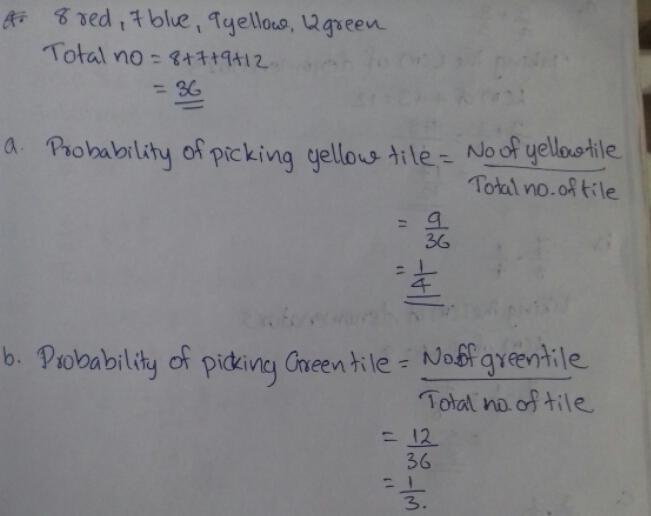 8 red, 7 blue, 9 yellow, 12 green
Total no = 8+7+9+12
= 36
a. Probability of picking yellow tile = No of yellow tile
Total no. of tile
= 9
36
= 1
4
b. Probability of picking Green tile = No of green tile
Total no. of tile
= 12
36
= 1
3.